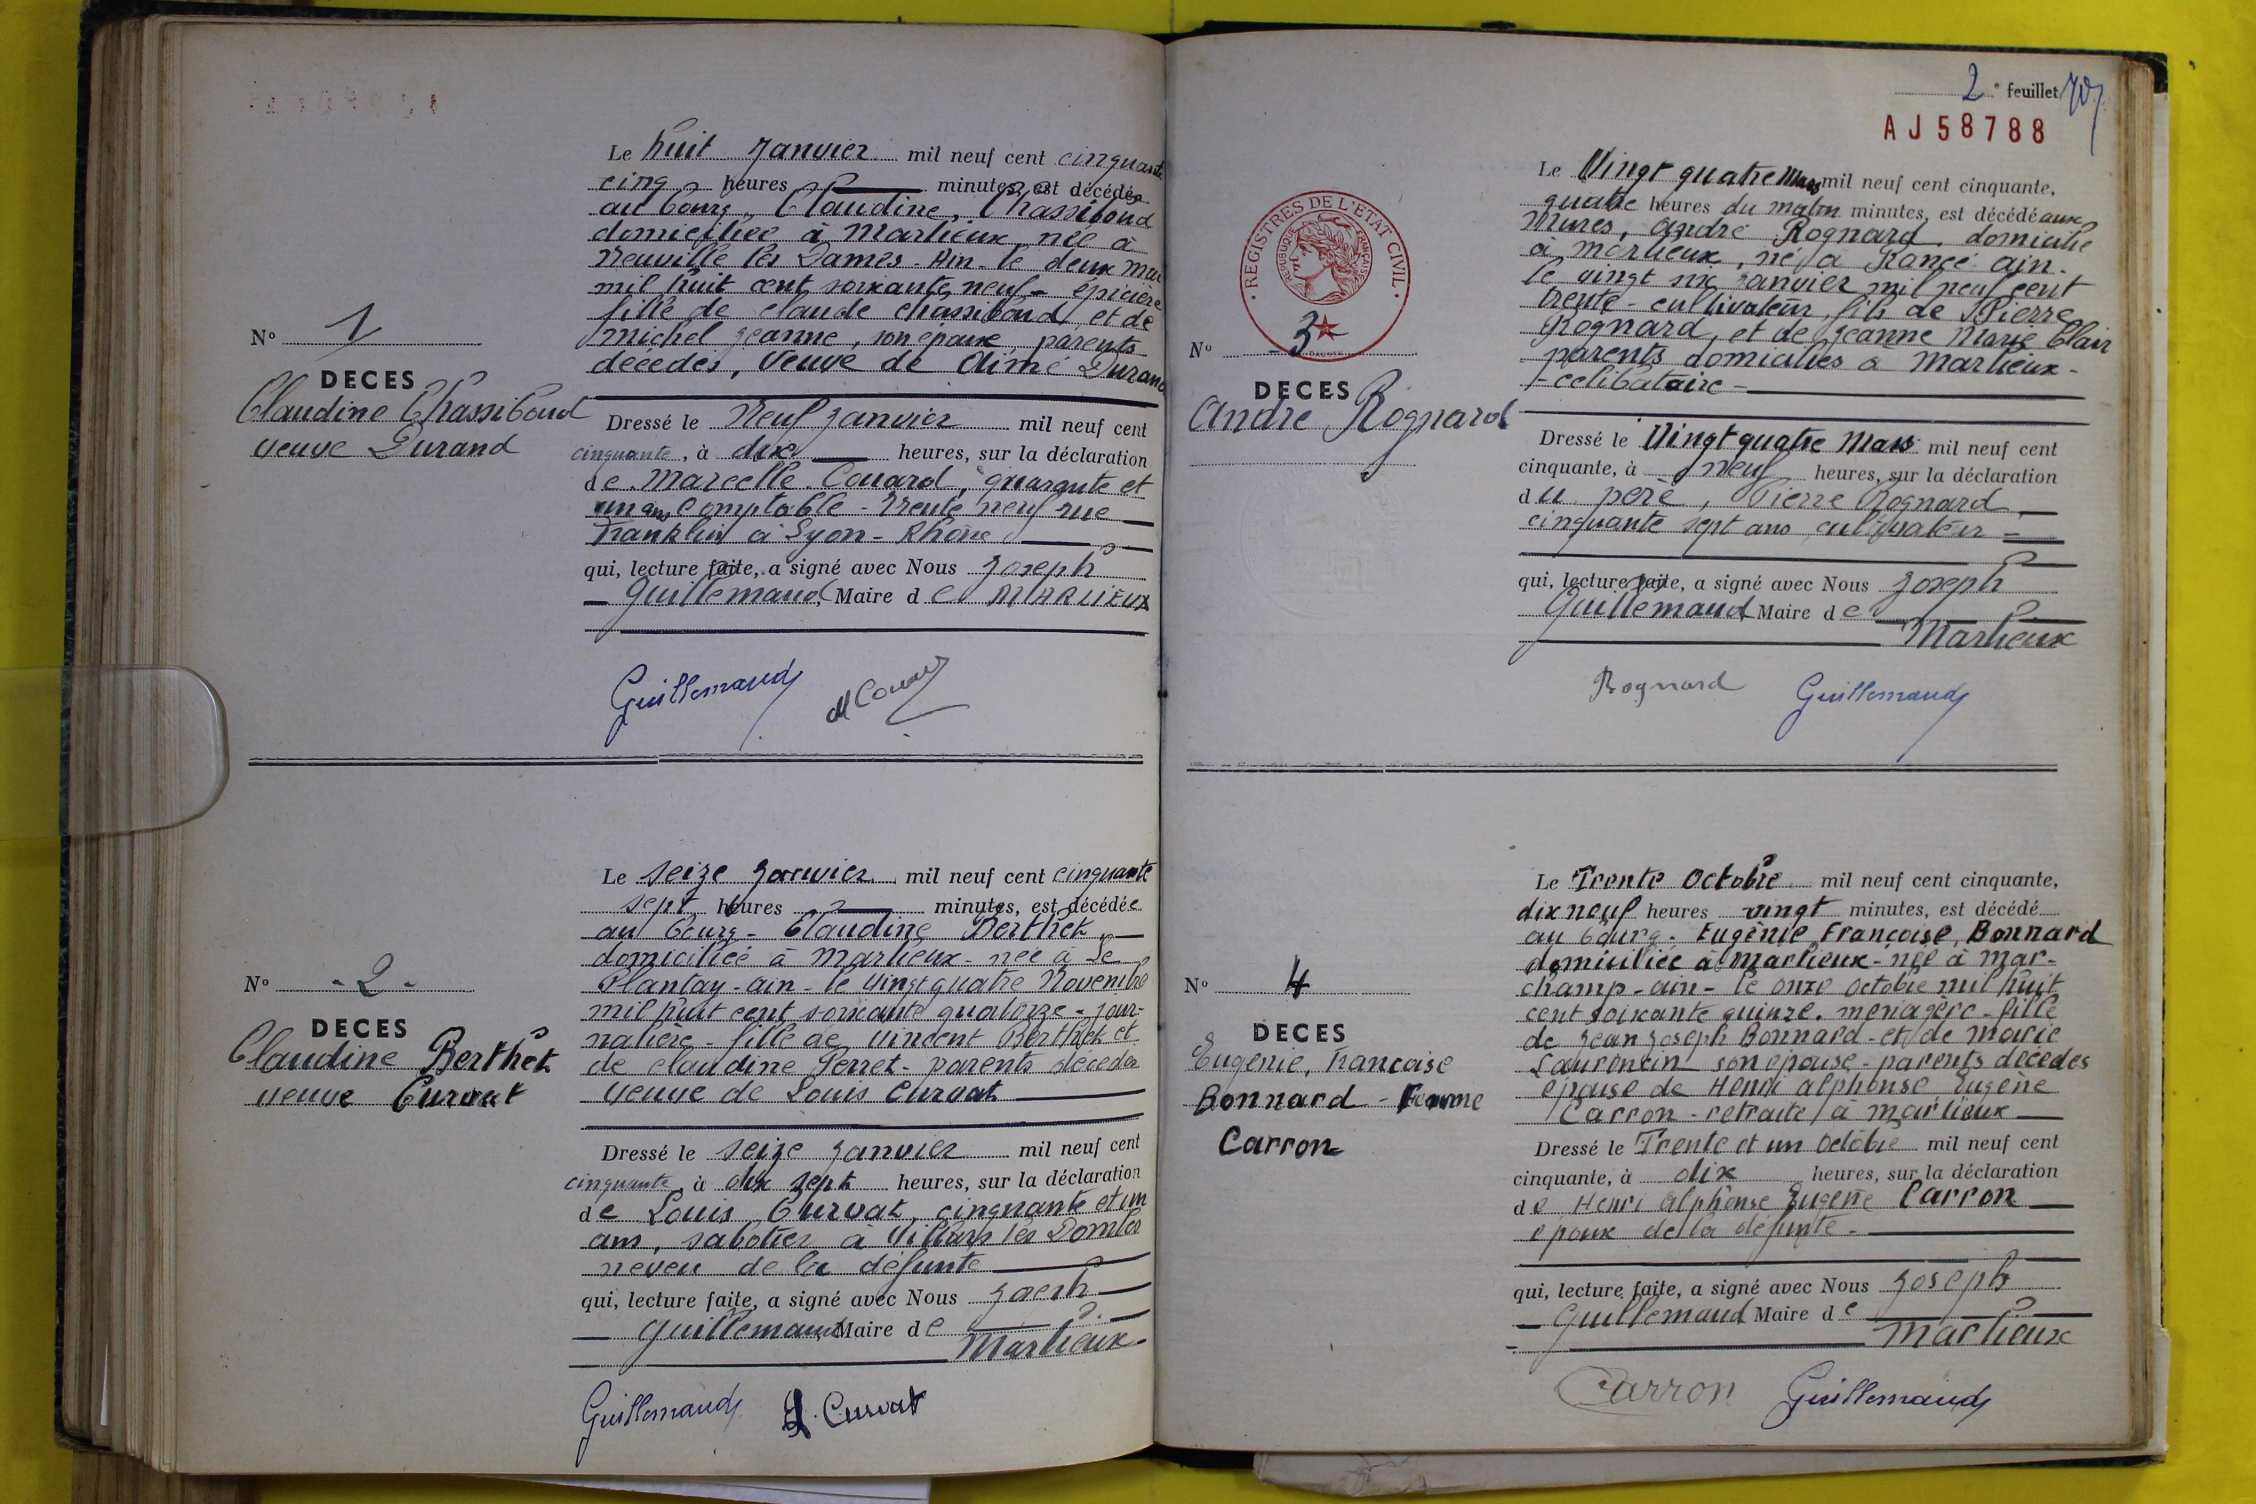 Le huit Janvier mil neuf cent cinquante
cinq heures — minutes, est décédée
au bourg, Claudine, Chassiboud
domiciliée à Marlieux, née à
Neuville les Dames - Ain - le deux mai
mil huit cent soixante neuf - épicière
fille de Claude Chassiboud, et de
Michel Jeanne, son épouse, parents
décédés, Veuve de Aimé Durand
Nº 1
DECES
Claudine Chassiboud
veuve Durand
Dressé le Neuf Janvier mil neuf cent
cinquante, à dix — heures, sur la déclaration
de Marcelle Couard, quarante et
un ans Comptable - Trente neuf rue
Franklin à Lyon - Rhône
qui, lecture faite, a signé avec Nous Joseph
Guillemaud, Maire de MARLIEUX
Guillemaud M Couard
Le seize Janvier mil neuf cent cinquante
sept heures — minutes, est décédée
au bourg - Claudine Berthet
domiciliée à Marlieux - née à Le
Plantay - ain - le vingt quatre Novembre
mil huit cent soixante quatorze - jour-
nalière - fille de Vincent Berthet et
de Claudine Perret - parents décédés
veuve de Louis Curvat
Nº - 2 -
DECES
Claudine Berthet
veuve Curvat
Dressé le seize Janvier mil neuf cent
cinquante, à dix sept heures, sur la déclaration
de Louis Curvat, cinquante et un
ans, sabotier à Villars les Dombes
neveu de la défunte
qui, lecture faite, a signé avec Nous
Guillemaud Maire de
Marlieux
Guillemaud L. Curvat
2e feuillet
AJ58788
REGISTRES DE L'ETAT CIVIL
REPUBLIQUE FRANÇAISE
Le Vingt quatre Mars mil neuf cent cinquante,
quatre heures du matin minutes, est décédé aux
Mures, André Rognard, domicilié
à Marlieux, né à Rancé ain -
le vingt six Janvier mil neuf cent
trente - cultivateur, fils de Pierre
Rognard, et de Jeanne Marie Clair
parents domiciliés à Marlieux -
- celibataire -
Nº - 3 -
DECES
André Rognard
Dressé le Vingt quatre Mars mil neuf cent
cinquante, à neuf heures, sur la déclaration
du père, Pierre Rognard
cinquante sept ans cultivateur
qui, lecture faite, a signé avec Nous Joseph
Guillemaud Maire de
Marlieux
Rognard Guillemaud
Le Trente Octobre mil neuf cent cinquante,
dix neuf heures vingt minutes, est décédé
au bourg - Eugènie Françoise, Bonnard
domiciliée à Marlieux - née à Mar-
champ - ain - le onze octobre mil huit
cent soixante quinze. menagère - fille
de Jean Joseph Bonnard - et de Marie
Laurencin son épouse - parents décédés
épouse de Henri Alphonse Eugène
Carron - retraité à Marlieux
Nº 4
DECES
Eugènie, Francoise
Bonnard - Femme
Carron
Dressé le Trente et un Octobre mil neuf cent
cinquante, à dix heures, sur la déclaration
de Henri Alphonse Eugène Carron
époux de la défunte -
qui, lecture faite, a signé avec Nous Joseph
Guillemaud Maire de
Marlieux
Carron Guillemaud